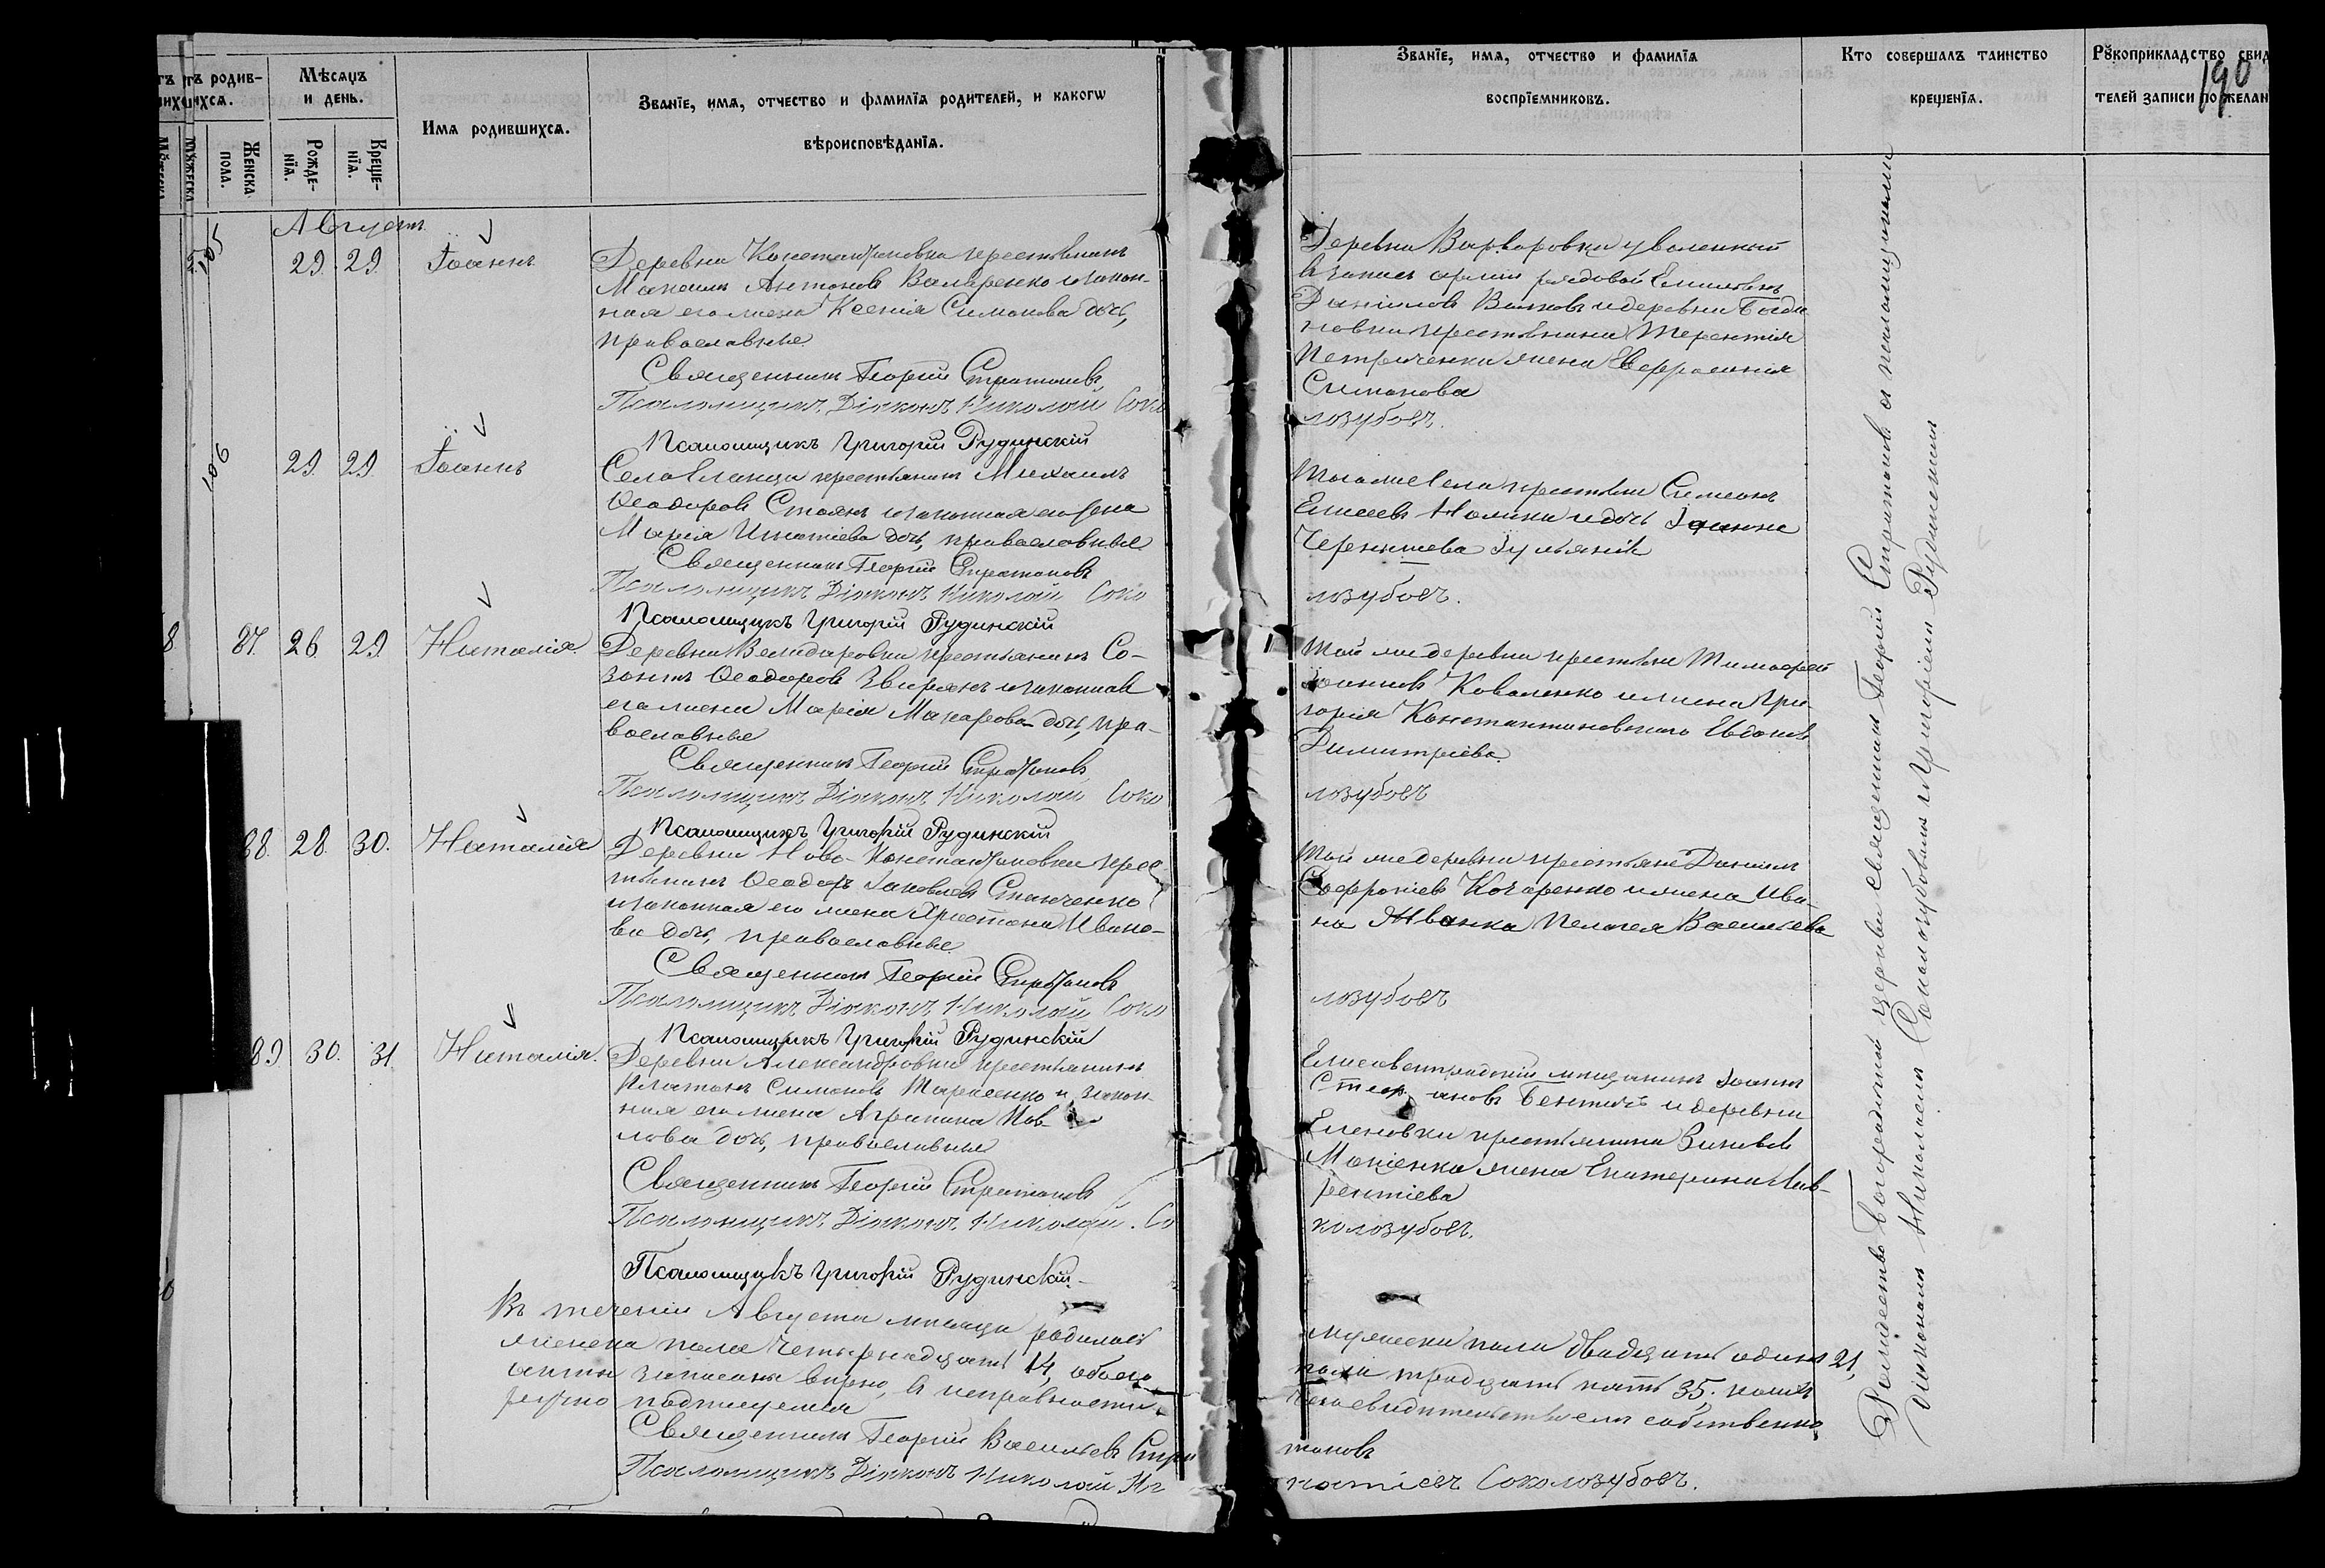 тъ родив-
шихся.
Мѣсяцъ
и день.
Имя родившихся.
Званїе, имя, отчество и фамилїя родителей, и какогѡ
вѣроисповѣданїя.
Мꙋжеска
Женска
пола.
Рожде-
нїя.
Креще-
нїя.
Званїе, имя, отчество и фамилїя
воспрїемниковъ.
Кто совершалъ таинство
крещенїя.
Рꙋкоприкладство свид
телей записи по желан
190
Августъ
105
29. 29. Іоаннъ
Деревни Константиновки крестьянинъ
Максимъ Антоновъ и закон-
ная его жена Ксенія Симонова дочь,
православные
Священникъ Георгій Стратоновъ
Псаломщикъ Діаконъ Николай Соко
Псаломщикъ Григорій Рудинскій
Деревни Варваровки уволенный
въ запасъ арміи рядовой
Даніиловъ Волковъ и деревни Богда
новки крестьянина Терентія
Петриченки жена Евфросинія
Симонова
лозубовъ.
106
29. 29. Іоаннъ
Села Еланца крестьянинъ Михаилъ
Ѳеодоровъ Стоянъ и законная его жена
Марія Игнатіева дочь, православные
Священникъ Георгій Стратоновъ
Псаломщикъ Діаконъ Николай Соко
Псаломщикъ Григорій Рудинскій
Того же села крестьяне Симеонъ
Елисеевъ и дочь Іоанна
Чернышева Іуліанія
лозубовъ.
8 87. 26. 29. Наталія.
Деревни крестьянинъ Со-
зонтъ Ѳеодоровъ Звирянъ и законная
его жена Марія Макарова дочь, пра-
вославные
Священникъ Георгій Стратоновъ
Псаломщикъ Діаконъ Николай Соко
Псаломщикъ Григорій Рудинскій
Той же деревни крестьяне Тимофей
Іоанновъ Коваленко и жена Гри-
горія Константиновскаго Евдокія
Димитріева.
лозубовъ
88. 28. 30. Наталія
Деревни Ново-Константиновки крес-
тьянинъ Ѳеодоръ Іаковлевъ Станченко
и законная его жена Христина Ивано-
ва дочь, православные
Священникъ Георгій Стратоновъ
Псаломщикъ Діаконъ Николай Соко
Псаломщикъ Григорій Рудинскій
Той же деревни крестьяне Даніилъ
Софроніевъ Кочаренко и жена Ива-
на Жванка Пелагея Васильева
лозубовъ
89. 30. 31. Наталія.
Деревни Александровки крестьянинъ
Платонъ Симоновъ Тарасенко и закон-
ная его жена Агрипина Пав-
лова дочь, православные
Священникъ Георгій Стратоновъ
Псаломщикъ Діаконъ Николай. Со
Псаломщикъ Григорій Рудинскій.
Елисаветградскій мѣщанинъ Іоаннъ
Стеф ановъ и деревни
Еленовки крестьянина Зиновія
жена Екатерина Лав-
рентіева
колозубовъ.
Въ теченіи Августа мѣсяца родилось мужеска пола двадцать одинъ 21,
женска пола четырнадцать 14, обоего пола тридцать пять 35.
акты записаны вѣрно, въ исправности чего свидѣтельствуемъ собственно
ручно подписуемся
Священникъ Георгій Васильевъ Стра тоновъ
Псаломщикъ Діаконъ Николай Иг натіевъ Соколозубовъ.
Рождество Богородичной церкви священникъ Георгій Стратоновъ съ псаломщиками
Діакономъ Николаемъ Соколозубовымъ и Григоріемъ Рудинскимъ